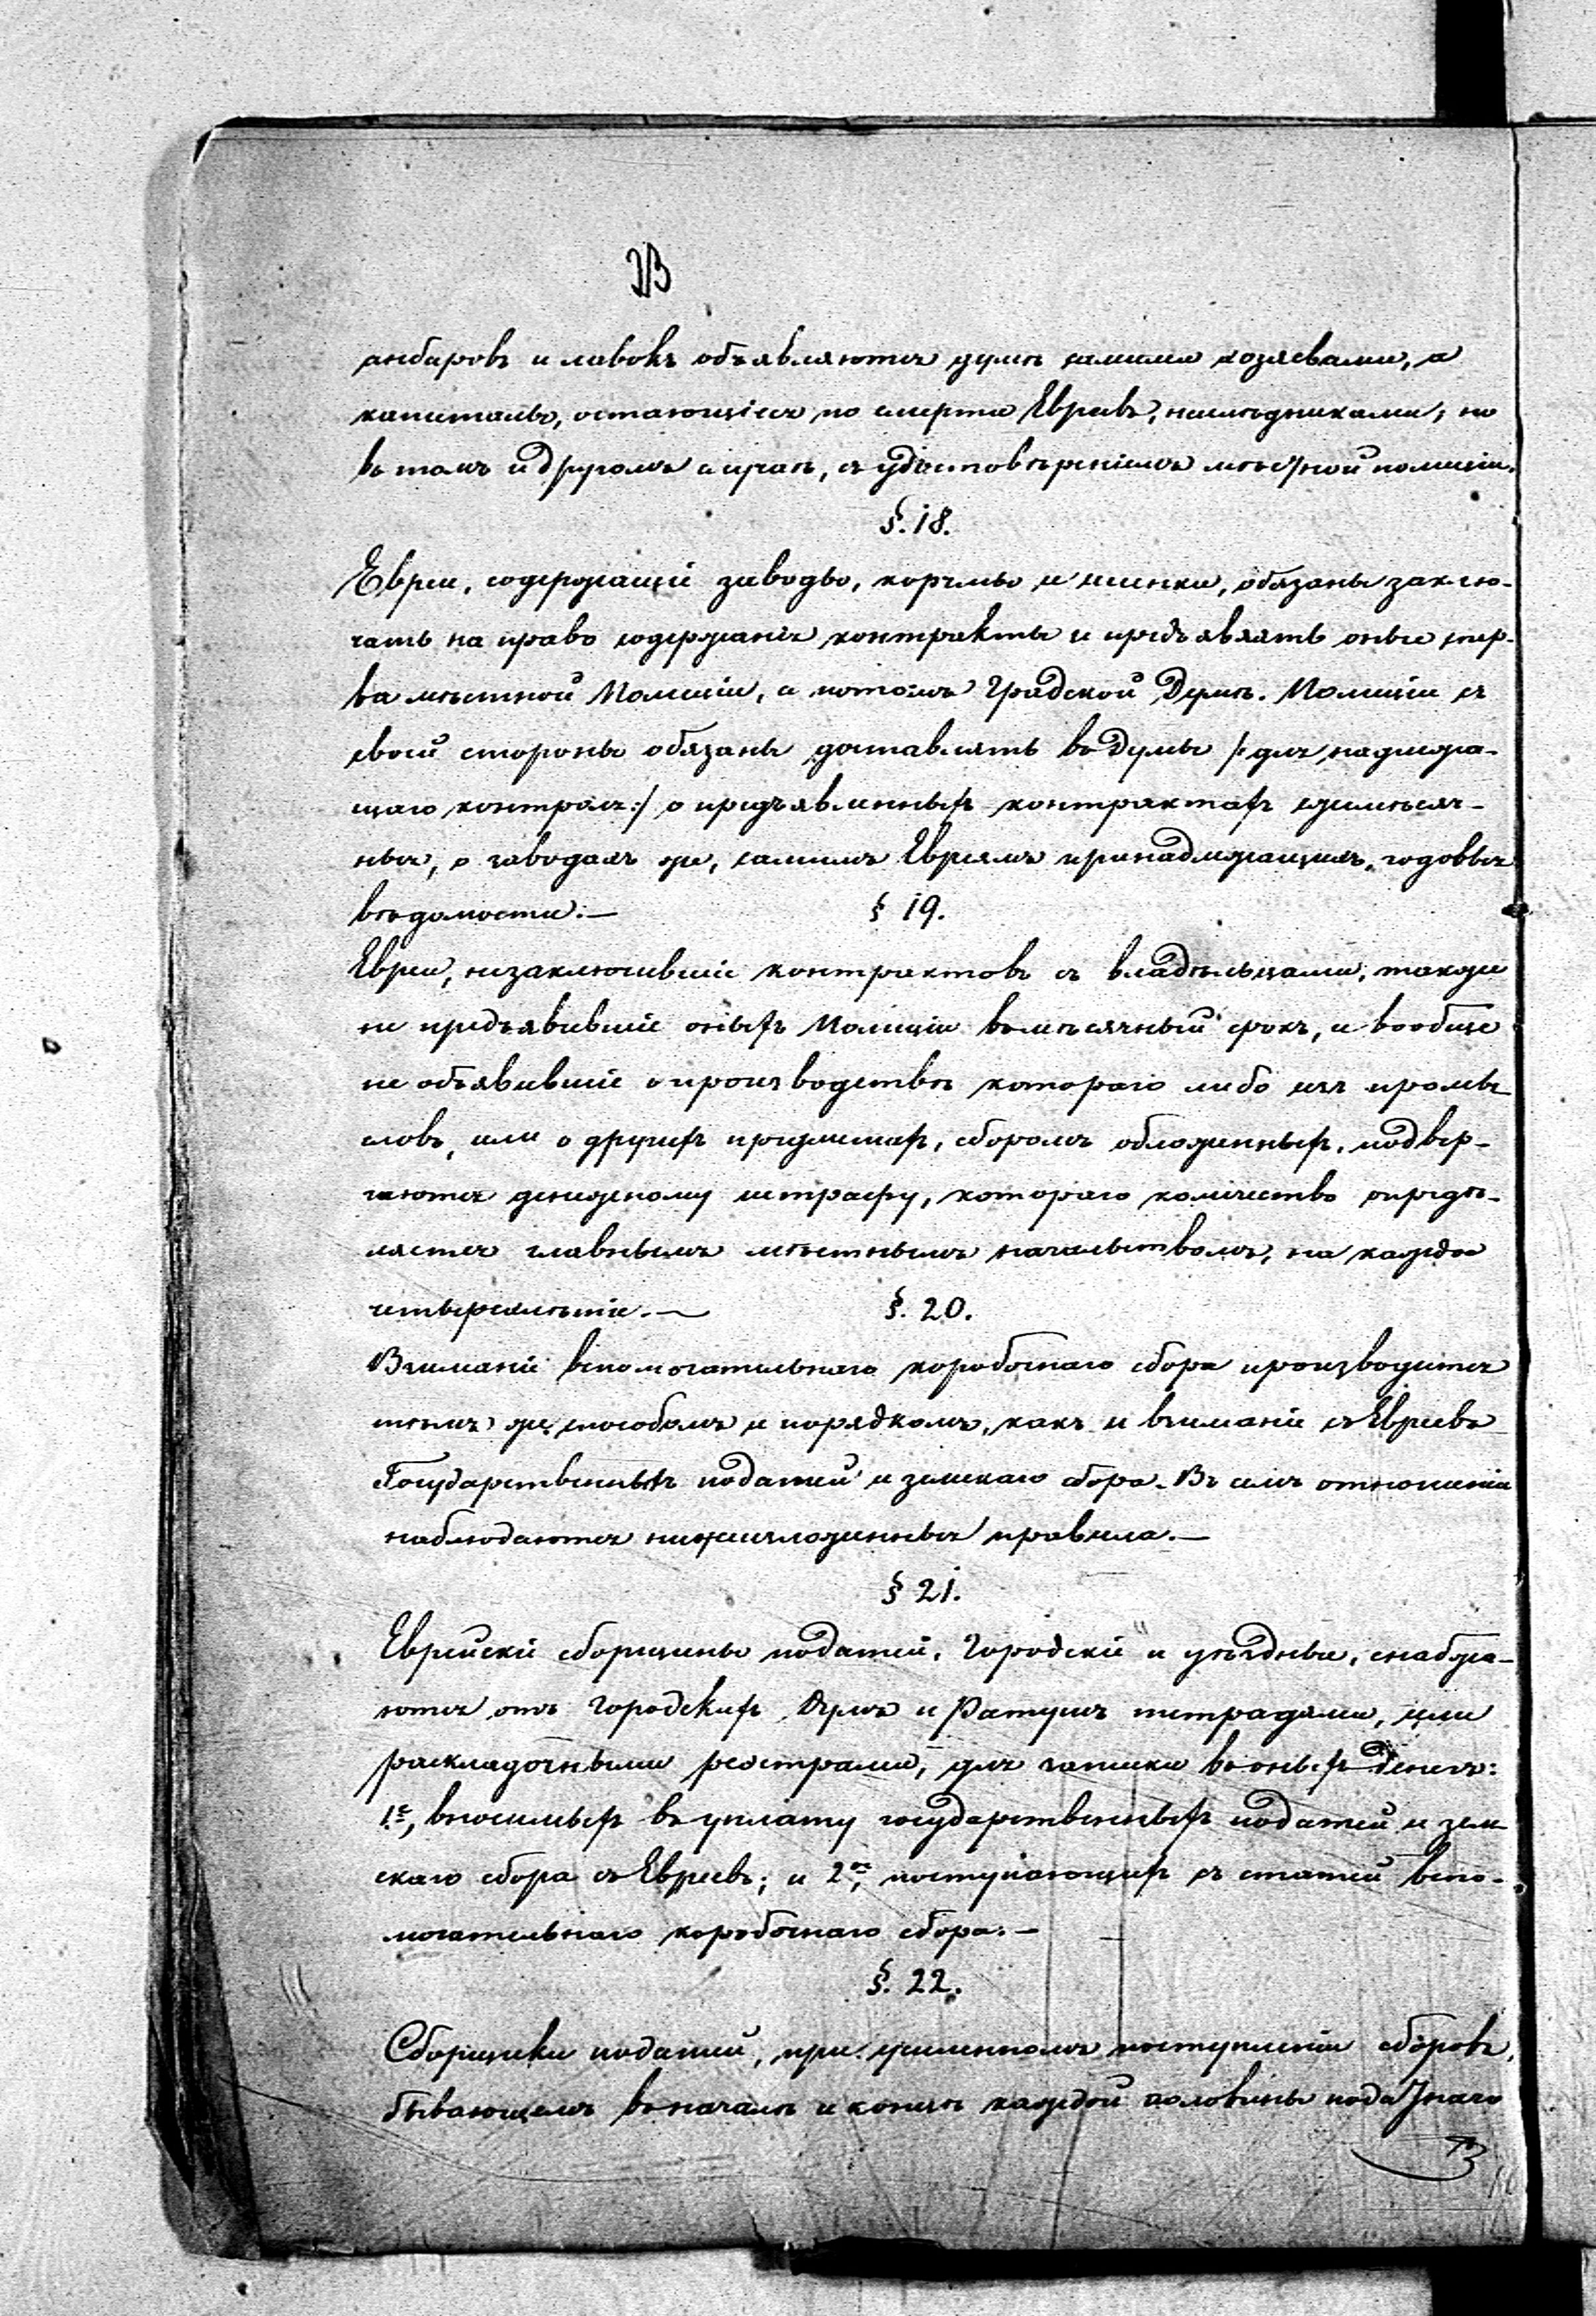 анбаровъ и лавокъ объявляются думѣ самими хозяевами, а
капиталы, остающіеся по смерти Евреевъ, наслѣдниками; но
въ томъ и другомъ случаѣ, съ удостовѣреніемъ мѣстной полиціи.
§. 18.
Евреи, содержащіе заводы, корчмы и шинки, обязаны заклю-
чать на право содержанія контракты и предъявлять оные спер-
ва мѣстной Полиціи, а потомъ Градской Думѣ. Полиціи съ
своей стороны обязаны доставлять въ Думы /:для надлежа-
щаго контроля:/ о предъявленныхъ контрактахъ ежемѣсяч-
ныя, о заводахъ же, самимъ Евреямъ принадлежащихъ, годовыя
вѣдомости.—
§ 19.
Евреи, незаключившіе контрактовъ съ владѣльцами, также
не предъявившіе оныхъ Полиціи въ мѣсячный срокъ, и вообще
не объявившіе о производствѣ котораго либо изъ промы-
словъ, или о другихъ предметахъ, сборомъ обложенныхъ, подвер-
гаются денежному штрафу, котораго количество опредѣ-
ляется главнымъ мѣстнымъ начальствомъ, на каждое
четырехлѣтіе.—
§. 20.
Взиманіе вспомогательнаго коробочнаго сбора производится
тѣмъ же способомъ и порядкомъ, какъ и взиманіе съ Евреевъ
Государственныхъ податей и земскаго сбора. Въ семъ отношеніи
наблюдаются нижеизложенныя правила.—
§ 21.
Еврейскіе сборщики податей, Городскіе и уѣздные, снабжа-
ются отъ Городскихъ Думъ и Ратушъ тетрадями, или
раскладочными реестрами, для записки въ оныхъ денегъ:
1е, вносимыхъ въ уплату государственныхъ податей и зем-
скаго сбора съ Евреевъ; и 2е, поступающихъ съ статей вспо-
могательнаго коробочнаго сбора.—
§. 22.
Сборщики податей, при усиленномъ поступленіи сборовъ,
бывающемъ въ началѣ и концѣ каждой половины податнаго